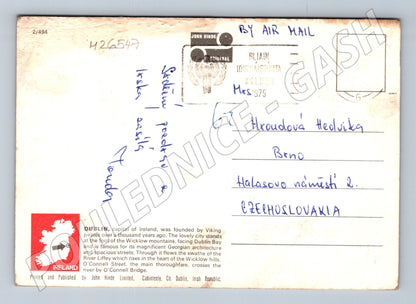 2/494
H26547
BY AIR MAIL
JOHN HINDE
1975
Mrs
Hroudová Hedvika
Brno
Halasovo náměstí 2.
CZECHOSLOVAKIA
Srdečný pozdrav z
Irska zasílá
DUBLIN, capital of Ireland, was founded by Viking
pirates over a thousand years ago. The lovely city stands
at the foot of the Wicklow mountains, facing Dublin Bay
and is famous for its magnificent Georgian architecture
and spacious streets. Through it flows the swathe of the
River Liffey which rises in the heart of the Wicklow hills.
O'Connell Street, the main thoroughfare, crosses the
river by O'Connell Bridge.
IRELAND
Printed and Published by John Hinde Limited, Cabinteely, Co. Dublin, Irish Republic.
POHLEDNICE - GASH